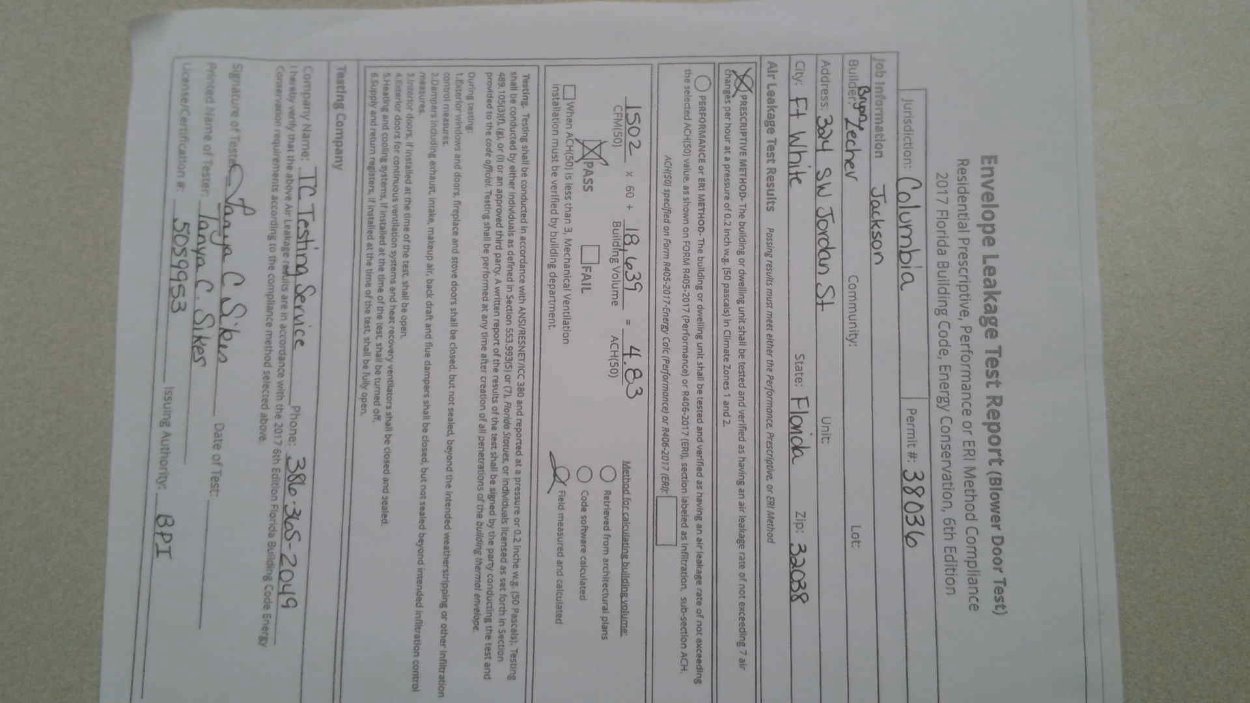 Envelope Leakage Test Report (Blower Door Test)
Residential Prescriptive, Performance or ERI Method Compliance
2017 Florida Building Code, Energy Conservation, 6th Edition
Jurisdiction: Columbia Permit #: 38036
Job Information Jackson
Builder: Bryan Zecher Community: Lot:
Address: 324 SW Jordan St Unit:
City: Ft White State: Florida Zip: 32038
Air Leakage Test Results Passing results must meet either the Performance, Prescriptive, or ERI Method
PRESCRIPTIVE METHOD- The building or dwelling unit shall be tested and verified as having an air leakage rate of not exceeding 7 air
changes per hour at a pressure of 0.2 inch w.g. (50 pascals) in Climate Zones 1 and 2.
PERFORMANCE or ERI METHOD- The building or dwelling unit shall be tested and verified as having an air leakage rate of not exceeding
the selected ACH(50) value, as shown on FORM R405-2017 (Performance) or R406-2017 (ERI), section labeled as infiltration, sub-section ACH.
ACH(50) specified on Form R405-2017-Energy Calc (Performance) or R406-2017 (ERI):
1502 x 60 ÷ 18,639 = 4.83
CFM(50) Building Volume ACH(50)
PASS FAIL
When ACH(50) is less than 3, Mechanical Ventilation
installation must be verified by building department.
Method for calculating building volume:
Retrieved from architectural plans
Code software calculated
Field measured and calculated
Testing. Testing shall be conducted in accordance with ANSI/RESNET/ICC 380 and reported at a pressure of 0.2 inch w.g. (50 Pascals). Testing
shall be conducted by either individuals as defined in Section 553.993(5) or (7), Florida Statues, or individuals licensed as set forth in Section
489.105(3)(f), (g), or (i) or an approved third party. A written report of the results of the test shall be signed by the party conducting the test and
provided to the code official. Testing shall be performed at any time after creation of all penetrations of the building thermal envelope.
During testing:
1.Exterior windows and doors, fireplace and stove doors shall be closed, but not sealed, beyond the intended weatherstripping or other infiltration
control measures.
2.Dampers including exhaust, intake, makeup air, back draft and flue dampers shall be closed, but not sealed beyond intended infiltration control
measures.
3.Interior doors, if installed at the time of the test, shall be open.
4.Exterior doors for continuous ventilation systems and heat recovery ventilators shall be closed and sealed.
5.Heating and cooling systems, if installed at the time of the test, shall be turned off.
6.Supply and return registers, if installed at the time of the test, shall be fully open.
Testing Company
Company Name: TC Testing Service Phone: 386-365-2049
I hereby verify that the above Air Leakage results are in accordance with the 2017 6th Edition Florida Building Code Energy
Conservation requirements according to the compliance method selected above.
Signature of Tester: Tanya C Sikes Date of Test:
Printed Name of Tester: Tanya C. Sikes
License/Certification #: 5059953 Issuing Authority: BPI